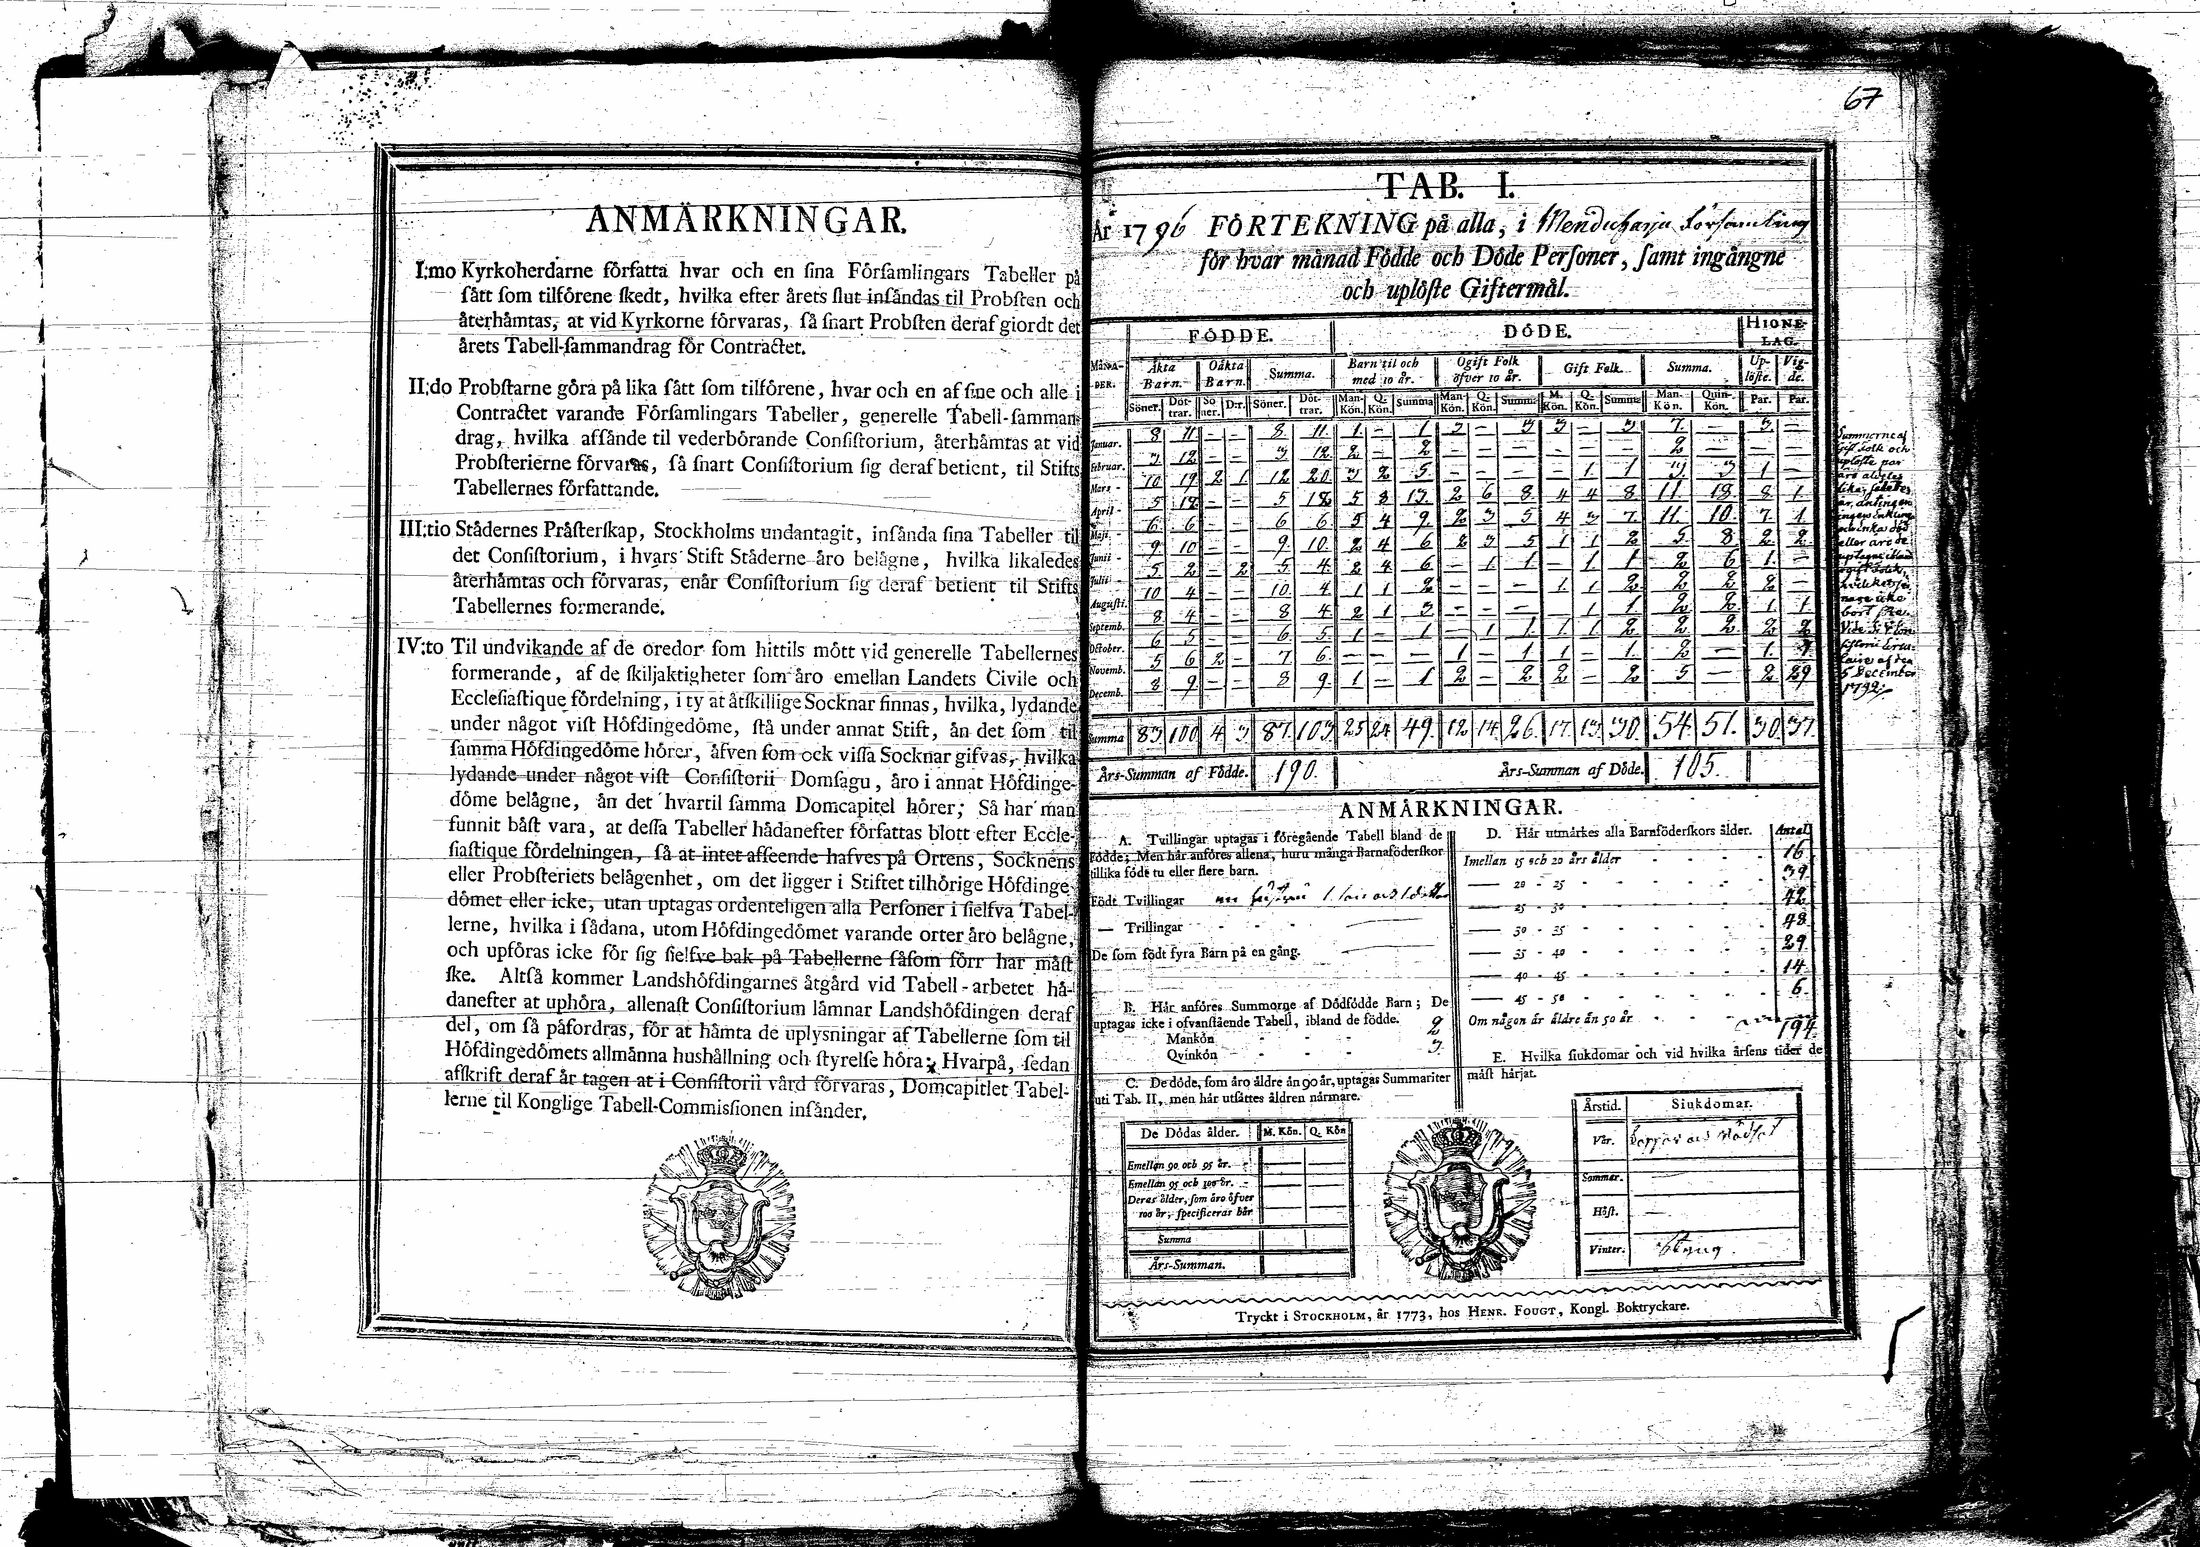 ANMÄRKNINGAR.
I:mo Kyrkoherdarne författa hvar och en sina Församlingars Tabeller på
sått som tilförene skedt, hvilka efter årets slut insåndas til Probsten och
återhåmtas, at vid Kyrkorne förvaras, så snart Probsten deraf giordt det
årets Tabell-sammandrag för Contractet.
II:do Probstarne göra på lika sått som tilförene, hvar och en af sine och alle i
Contractet varande Församlingars Tabeller, generelle Tabell-samman-
drag, hvilka afsånde til vederbörande Consistorium, återhåmtas at vid
Probsterierne förvaras, så snart Consistorium sig deraf betient, til Stifts
Tabellernes författande.
III:tio Städernes Pråsterskap, Stockholms undantagit, insånda sina Tabeller til
det Consistorium, i hvars Stift Ståderne åro belågne, hvilka likaledes
återhåmtas och förvaras, enår Consistorium sig deraf betient til Stifts
Tabellernes formerande.
IV:to Til undvikande af de oredor som hittils mött vid generelle Tabellernes
formerande, af de skiljaktigheter som åro emellan Landets Civile och
Ecclesiastique fördelning, i ty at åtskillige Socknar finnas, hvilka, lydande
under något vist Höfdingedöme, stå under annat Stift, ån det som til
samma Höfdingedöme hörer, åfven som ock vissa Socknar gifvas, hvilka
lydande under något vist Consistorii Domsagu, åro i annat Höfdinge-
döme belågne, ån det hvartil samma Domcapitel hörer; Så har man
funnit båst vara, at dessa Tabeller hådanefter författas blott efter Eccle-
siastique fördelningen, så at intet afseende hafves på Ortens, Socknens
eller Probsteriets belågenhet, om det ligger i Stiftet tilhörige Höfdinge-
dömet eller icke, utan uptagas ordenteligen alla Personer i sielfva Tabel-
lerne, hvilka i sådana, utom Höfdingedömet varande orter åro belågne,
och upföras icke för sig sielfve bak på Tabellerne såsom förr har måst
ske. Altså kommer Landshöfdingarnes åtgård vid Tabell-arbetet hå-
danefter at uphöra, allenast Consistorium låmnar Landshöfdingen deraf
del, om så påfordras, för at håmta de uplysningar af Tabellerne som til
Höfdingedömets allmånna hushållning och styrelse höra; Hvarpå, sedan
afskrift deraf år tagen at i Consistorii vård förvaras, Domcapitlet Tabel-
lerne til Konglige Tabell-Commissionen insånder.
67
TAB. I.
År 1796 FÖRTEKNING på alla, i Församling
för hvar månad Födde och Döde Personer, samt ingångne
och uplöste Giftermål.
FÖDDE. DÖDE. HIONE-LAG.
MÅNA-DER. Äkta Barn. Oåkta Barn. Summa. Barn til och med 10 år. Ogift Folk öfver 10 år. Gift Folk. Summa. Up-löste. Vig-de.
Söner. Döt-trar. So ner. D:r. Söner. Döt-trar. Man-Kön. Q-Kön. Summa Man-Kön. Q-Kön. Summa M. Kön. Q-Kön. Summa Man-Kön. Quin-Kön. Par. Par.
Januar. 8 11 - - 8 11 1 - 1 3 - 3 3 - 3 7 - 3 -
Februar. 3 12 - - 3 12 2 - 2 - - - - - - 2 - - -
Mars 10 19 2 1 12 20 3 2 5 - - - - 1 1 3 3 1 -
April 5 18 - - 5 18 5 8 13 2 6 8 4 4 8 11 18 8 1
Maji 6 6 - - 6 6 5 4 9 2 3 5 4 3 7 11 10 7 1
Junii 9 10 - - 9 10 2 4 6 2 3 5 1 1 2 5 8 2 2
Julii 5 2 - 2 5 4 2 4 6 - 1 1 - 1 1 2 6 1 -
Augusti. 10 4 - - 10 4 1 1 2 - - - 1 1 2 2 2 2 -
Septemb. 8 4 - - 8 4 2 1 3 - - - 1 1 2 2 1 1
October. 6 5 - - 6 5 1 - 1 - 1 1 1 1 2 2 2 2 2
Novemb. 5 6 2 - 7 6 - - - 1 - 1 1 - 1 2 - 1 1
Decemb. 8 9 - - 8 9 1 - 1 2 - 2 2 - 2 5 - 2 29
Summa 83 100 4 3 87 103 25 24 49 12 14 26 17 13 30 54 51 30 37
Års-Summan af Födde. 190. Års-Summan af Döde. 105.
Summorne af
Gift Folk och
uplöste par
5 December
1792
ANMÄRKNINGAR.
A. Tvillingar uptagas i föregående Tabell bland de
Födde; Men här anföres allena, huru många Barnaföderskor
tillika föde tu eller flere barn.
Födt Tvillingar
— Trillingar
De som födt fyra Barn på en gång.
B. Här anföres Summorne af Dödfödde Barn; De
uptagas icke i ofvanstående Tabell, ibland de födde.
Mankön 2
Qvinkön 3
C. De döde, som åro åldre ån 90 år, uptagas Summariter
uti Tab. II, men hår utsåttes åldren nårmare.
De Dödas ålder. M. Kön. Q. Kön
Emellan 90 och 95 år.
Emellan 95 och 100 år.
Deras ålder, som åro öfver
100 år, specificeras hår
Summa
Års-Summan.
D. Hår utmärkes alla Barnföderskors ålder. Antal
Imellan 15 och 20 års ålder 16
— 20 - 25 39
— 25 - 30 42
— 30 - 35 48
— 35 - 40 29
— 40 - 45 14
— 45 - 50 6
Om någon är äldre än 50 år
194
E. Hvilka siukdomar och vid hvilka årsens tider de
måst hårjat.
Årstid. Siukdomar.
Vår.
Sommar.
Höst.
Vinter.
Tryckt i STOCKHOLM, år 1773, hos HENR. FOUGT, Kongl. Boktryckare.